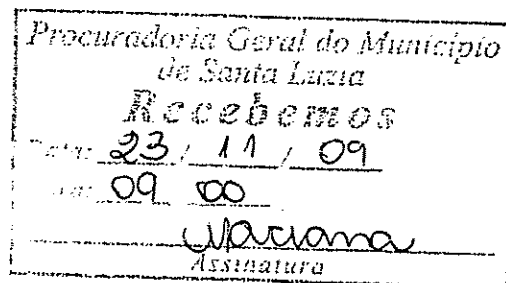 Procuradoria Geral do Município
de Santa Luzia
Recebemos
Data: 23 / 11 / 09
09 00
Mariana
Assinatura